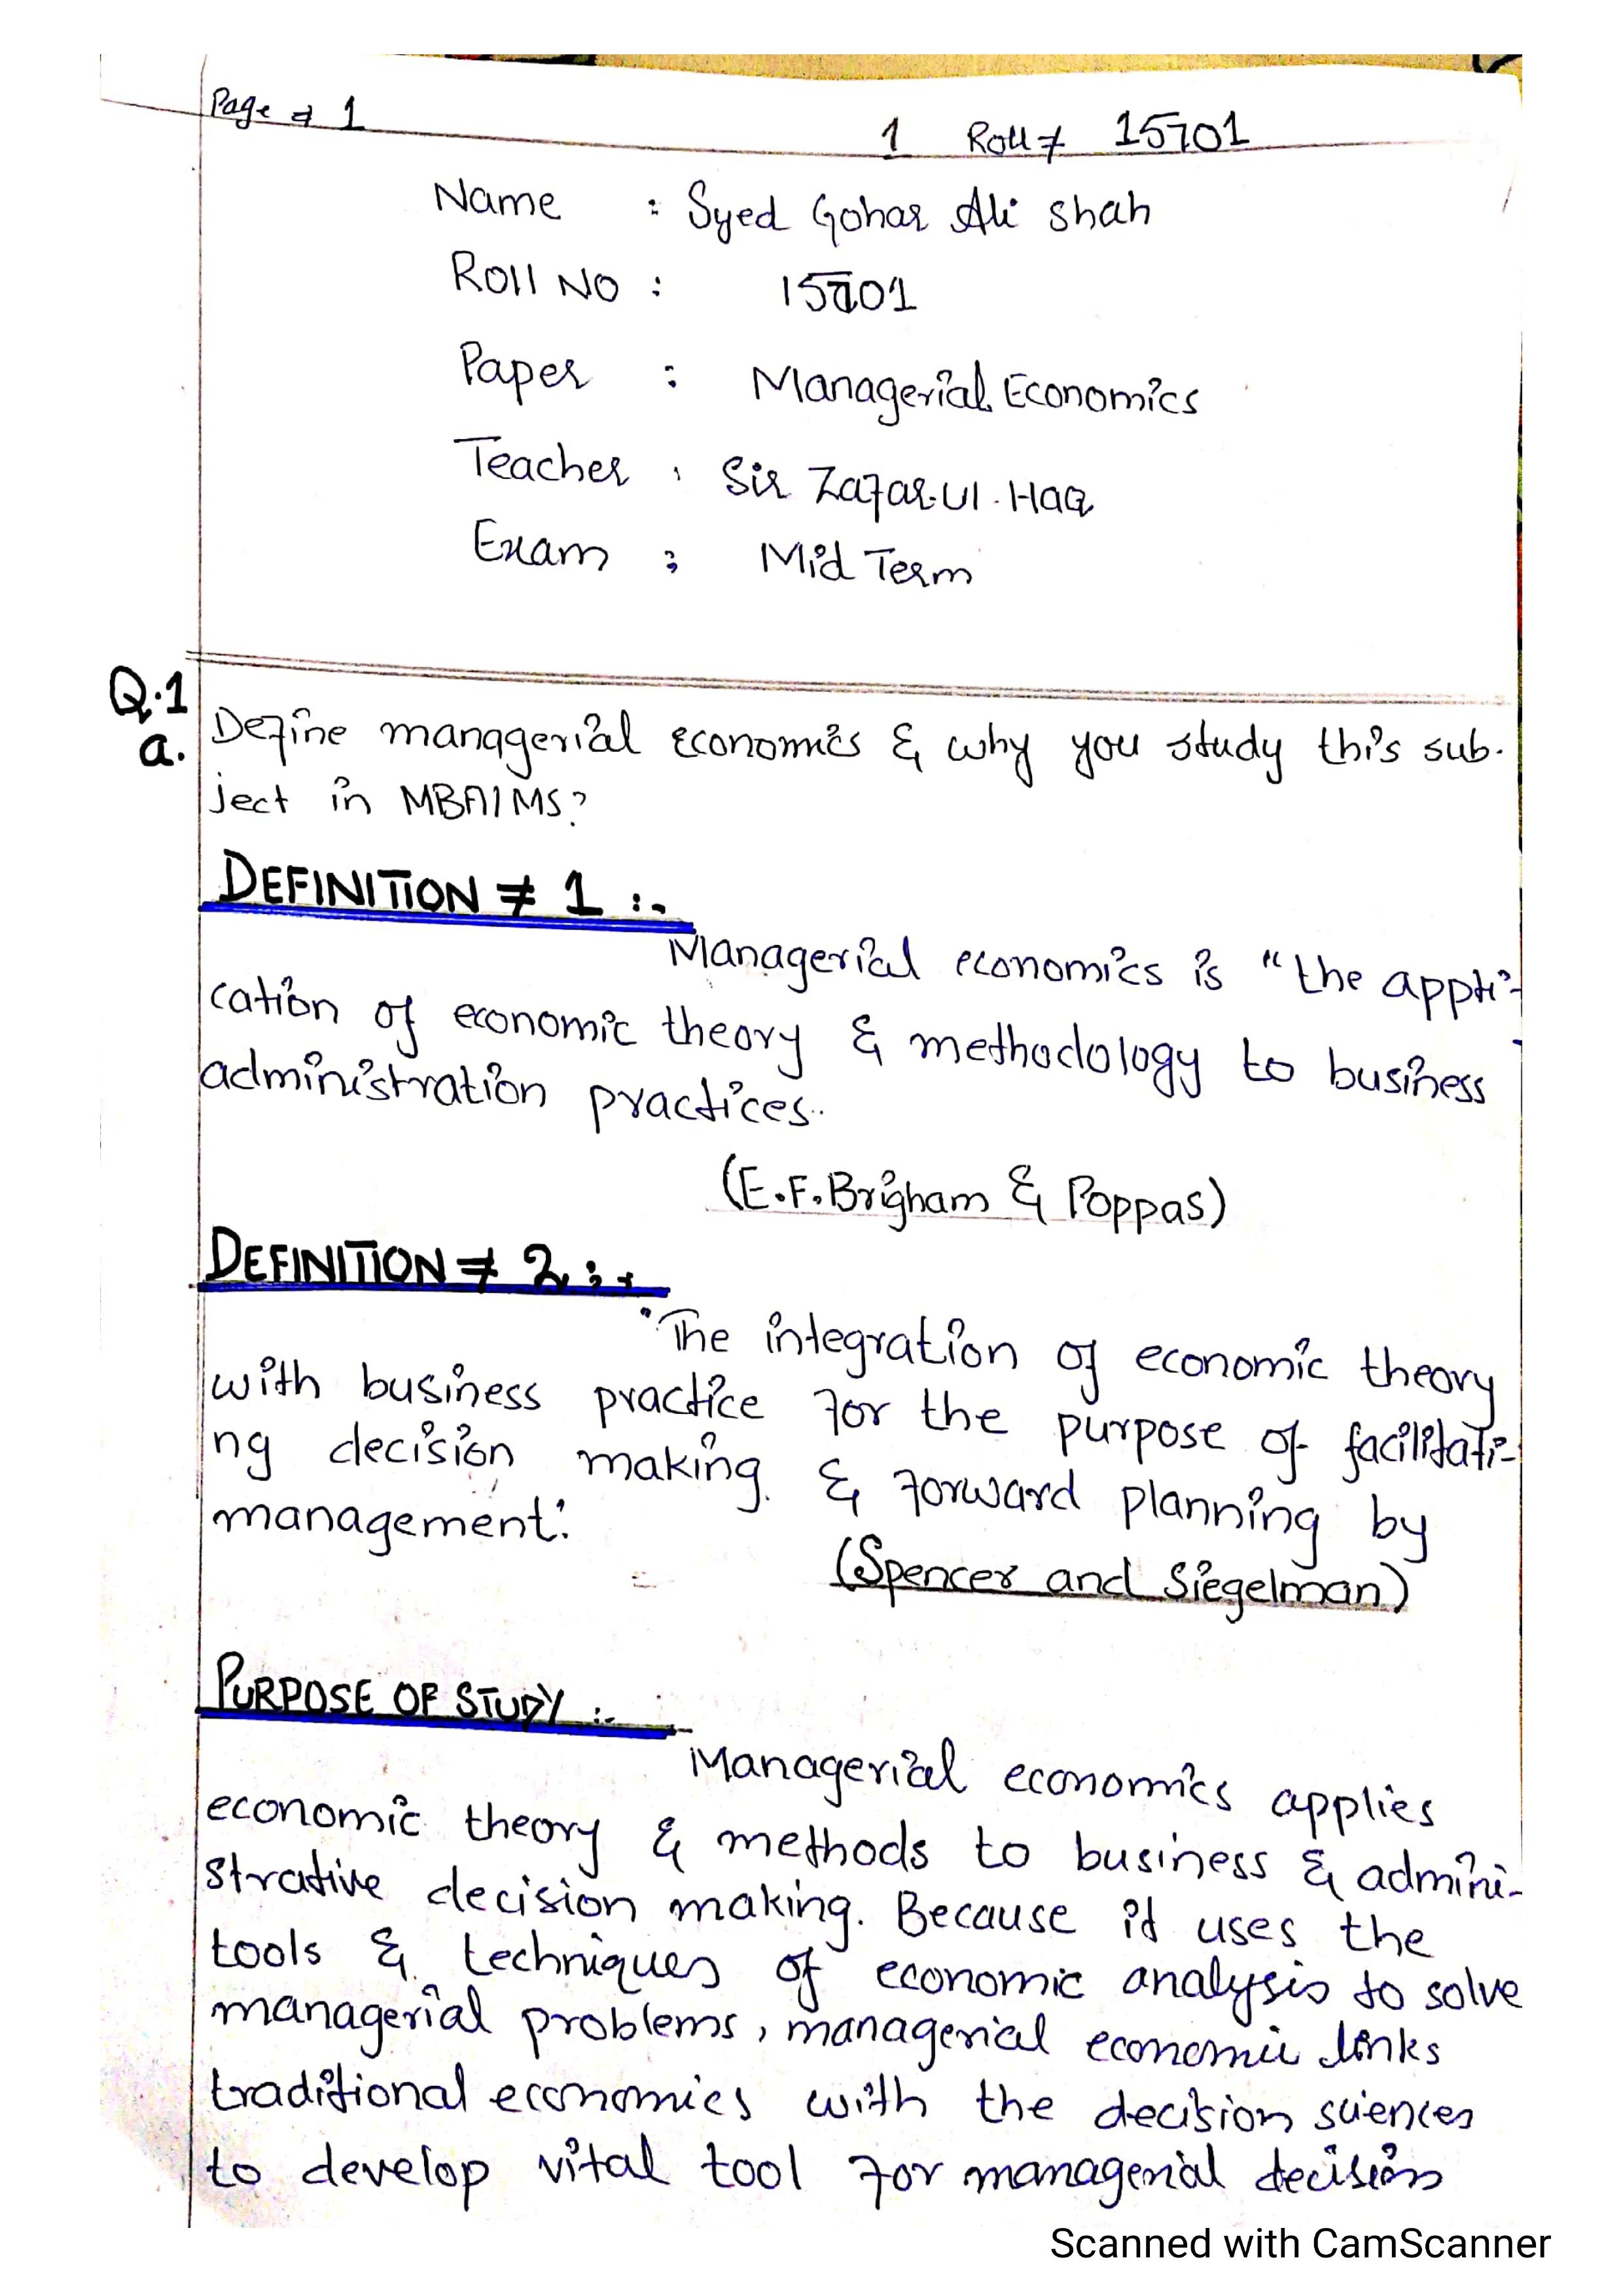 Page # 1
1 Roll # 15701
Name : Syed Gohar Ali Shah
Roll NO : 15701
Paper : Managerial Economics
Teacher : Sir Zafar-Ul-Haq
Exam : Mid Term
Q.1
a. Define managerial Economics & why you study this sub-
ject in MBA/MS?
DEFINITION # 1 :-
Managerial economics is "the appli-
cation of economic theory & methodology to business
administration practices.
(E.F. Brigham & Poppas)
DEFINITION # 2 :-
"The integration of economic theory
with business practice for the purpose of facilitati-
ng decision making & forward planning by
management."
(Spencer and Siegelman)
PURPOSE OF STUDY :-
Managerial economics applies
economic theory & methods to business & admini-
strative decision making. Because it uses the
tools & techniques of economic analysis to solve
managerial problems, managerial economic links
traditional economics with the decision sciences
to develop vital tool for managerial decision
Scanned with CamScanner